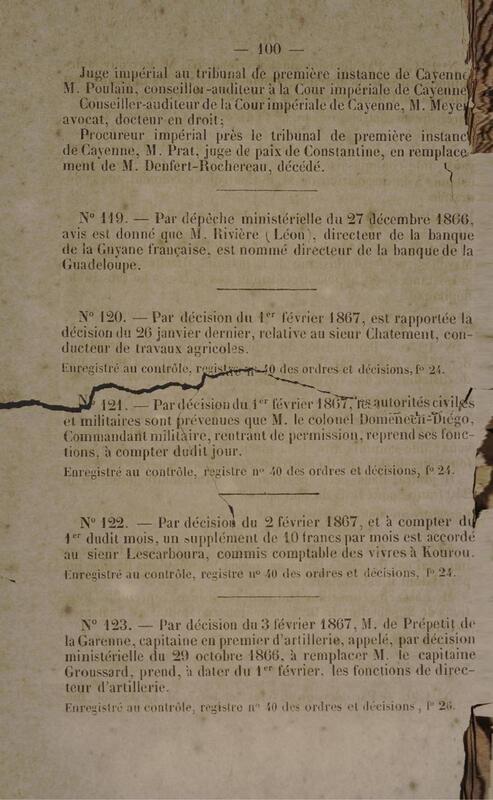 — 100 —
Juge impérial au tribunal de première instance de Cayenne
M. Poulain, conseiller-auditeur à la Cour impériale de Cayenne
Conseiller-auditeur de la Cour impériale de Cayenne, M. Meyer
avocat, docteur en droit;
Procureur impérial près le tribunal de première instanc
de Cayenne, M. Prat, juge de paix de Constantine, en remplace-
ment de M. Denfert-Rochereau, décédé.
N° 119. — Par dépêche ministérielle du 27 décembre 1866,
avis est donné que M. Rivière (Léon), directeur de la banque
de la Guyane française, est nommé directeur de la banque de la
Guadeloupe.
N° 120. — Par décision du 1er février 1867, est rapportée la
décision du 26 janvier dernier, relative au sieur Chatement, con-
ducteur de travaux agricoles.
Enregistré au contrôle, registre n° 40 des ordres et décisions, f° 24.
N° 121. — Par décision du 1er février 1867, les autorités civiles
et militaires sont prévenues que M. le colonel Domenech-Diégo,
Commandant militaire, rentrant de permission, reprend ses fonc-
tions, à compter dudit jour.
Enregistré au contrôle, registre n° 40 des ordres et décisions, f° 24.
N° 122. — Par décision du 2 février 1867, et à compter du
1er dudit mois, un supplément de 10 francs par mois est accordé
au sieur Lescarboura, commis comptable des vivres à Kourou.
Enregistré au contrôle, registre n° 40 des ordres et décisions, f° 24.
N° 123. — Par décision du 3 février 1867, M. de Prépetit de
la Garenne, capitaine en premier d'artillerie, appelé, par décision
ministérielle du 29 octobre 1866, à remplacer M. le capitaine
Groussard, prend, à dater du 1er février, les fonctions de direc-
teur d'artillerie.
Enregistré au contrôle, registre n° 40 des ordres et décisions, f° 26.